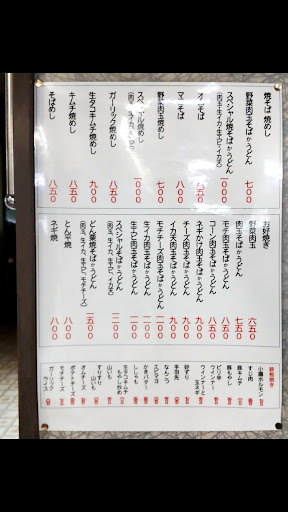 焼そば 焼めし
野菜肉玉そばかうどん 七〇〇
スペシャル焼そばかうどん 一〇〇〇
(肉玉・生イカ・生エビ・イカ天)
オムそば 八五〇
マーボそば 八〇〇
野菜肉玉焼めし 七〇〇
スペシャル焼めし 一〇〇〇
ガーリック焼めし 八五〇
生タコキムチ焼めし 九〇〇
キムチ焼めし 八五〇
そばめし 八五〇
お好焼き
野菜肉玉 六五〇
肉玉そばかうどん 七五〇
モチ肉玉そばかうどん 八五〇
コーン肉玉そばかうどん 八五〇
ネギかけ肉玉そばかうどん 九〇〇
チーズ肉玉そばかうどん 九〇〇
イカ天肉玉そばかうどん 九〇〇
モチチーズ肉玉そばかうどん
生イカ肉玉そばかうどん
生エビ肉玉そばかうどん
スペシャルそばかうどん
(肉玉、生イカ、生エビ、イカ天)
どん栗焼そばかうどん 一五〇〇
(肉玉、生イカ、生エビ、モチチーズ)
とん平焼 八〇〇
ネギ焼 八〇〇
鉄板焼き
小腸ホルモン
すじ肉
豚キムチ
豚もやし
ピリ辛ウインナー
ウインナーと玉ネギ
砂ずり
手羽先
なんこつ
かきバター
ししゃも
生タコキムチ
もやし炒め
山いも
すりすり山いも
オムチーズ
ポテトチーズ
モチチーズ
ガーリックライス